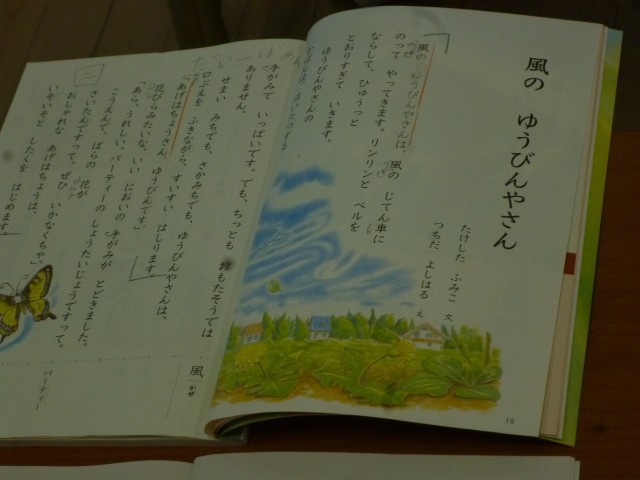 風の ゆうびんやさん
たけした ふみこ 文
つちだ よしはる え
風の ゆうびんやさんは、風の じてん車に
のって やってきます。リンリンと ベルを
ならして、ひゅうっと
とおりすぎて いきます。
ゆうびんやさんの
16
手がみで いっぱいです。でも、ちっとも おもたそうでは
ありません。
せまい みちでも、さかみちでも、ゆうびんやさんは、
口ぶえを ふきながら、すいすい はしります。
「あげはちょうさん、ゆうびんです」
花びらみたいな、いい においの 手がみが とどきました。
「あら、うれしい。パーティーの しょうたいじょうですって。
こうえんで、ばらの 花が
さいたんですって。ぜひ いかなくちゃ」
おしゃれな あげはちょうは、
いそいそと したくを はじめます。
風 かぜ
パーティー